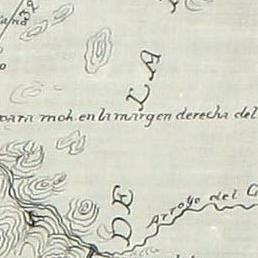 LA
para moh. en la margen derecha del
DE
Arroyo del